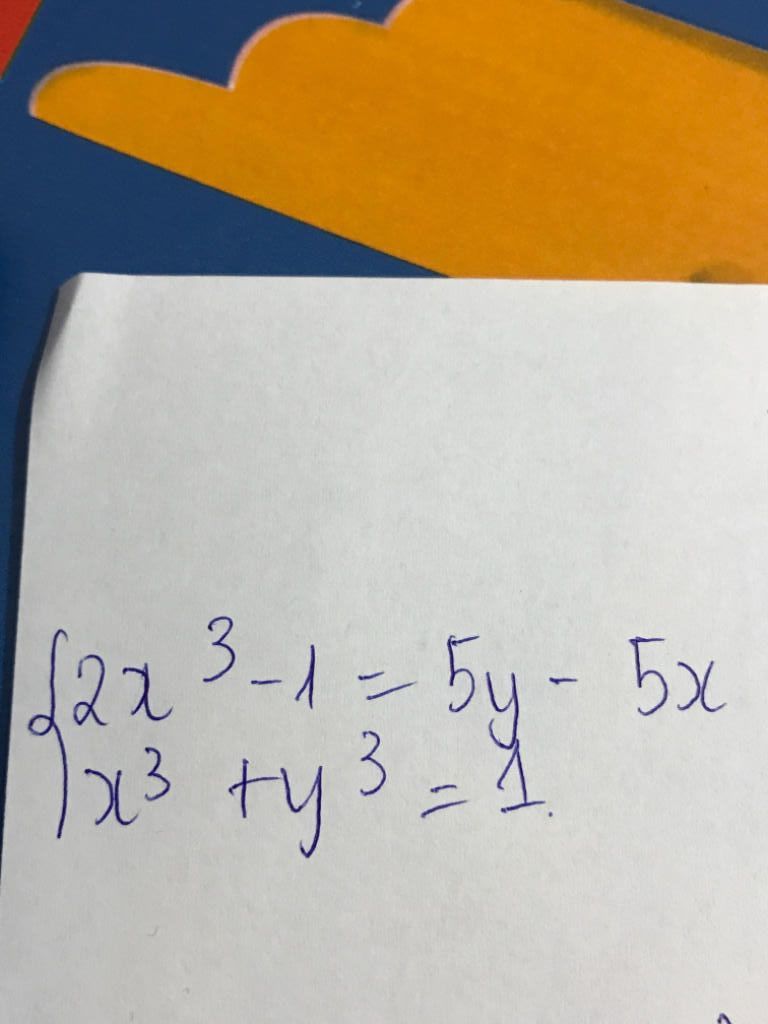 {2x³ - 1 = 5y - 5x
x³ + y³ = 1.